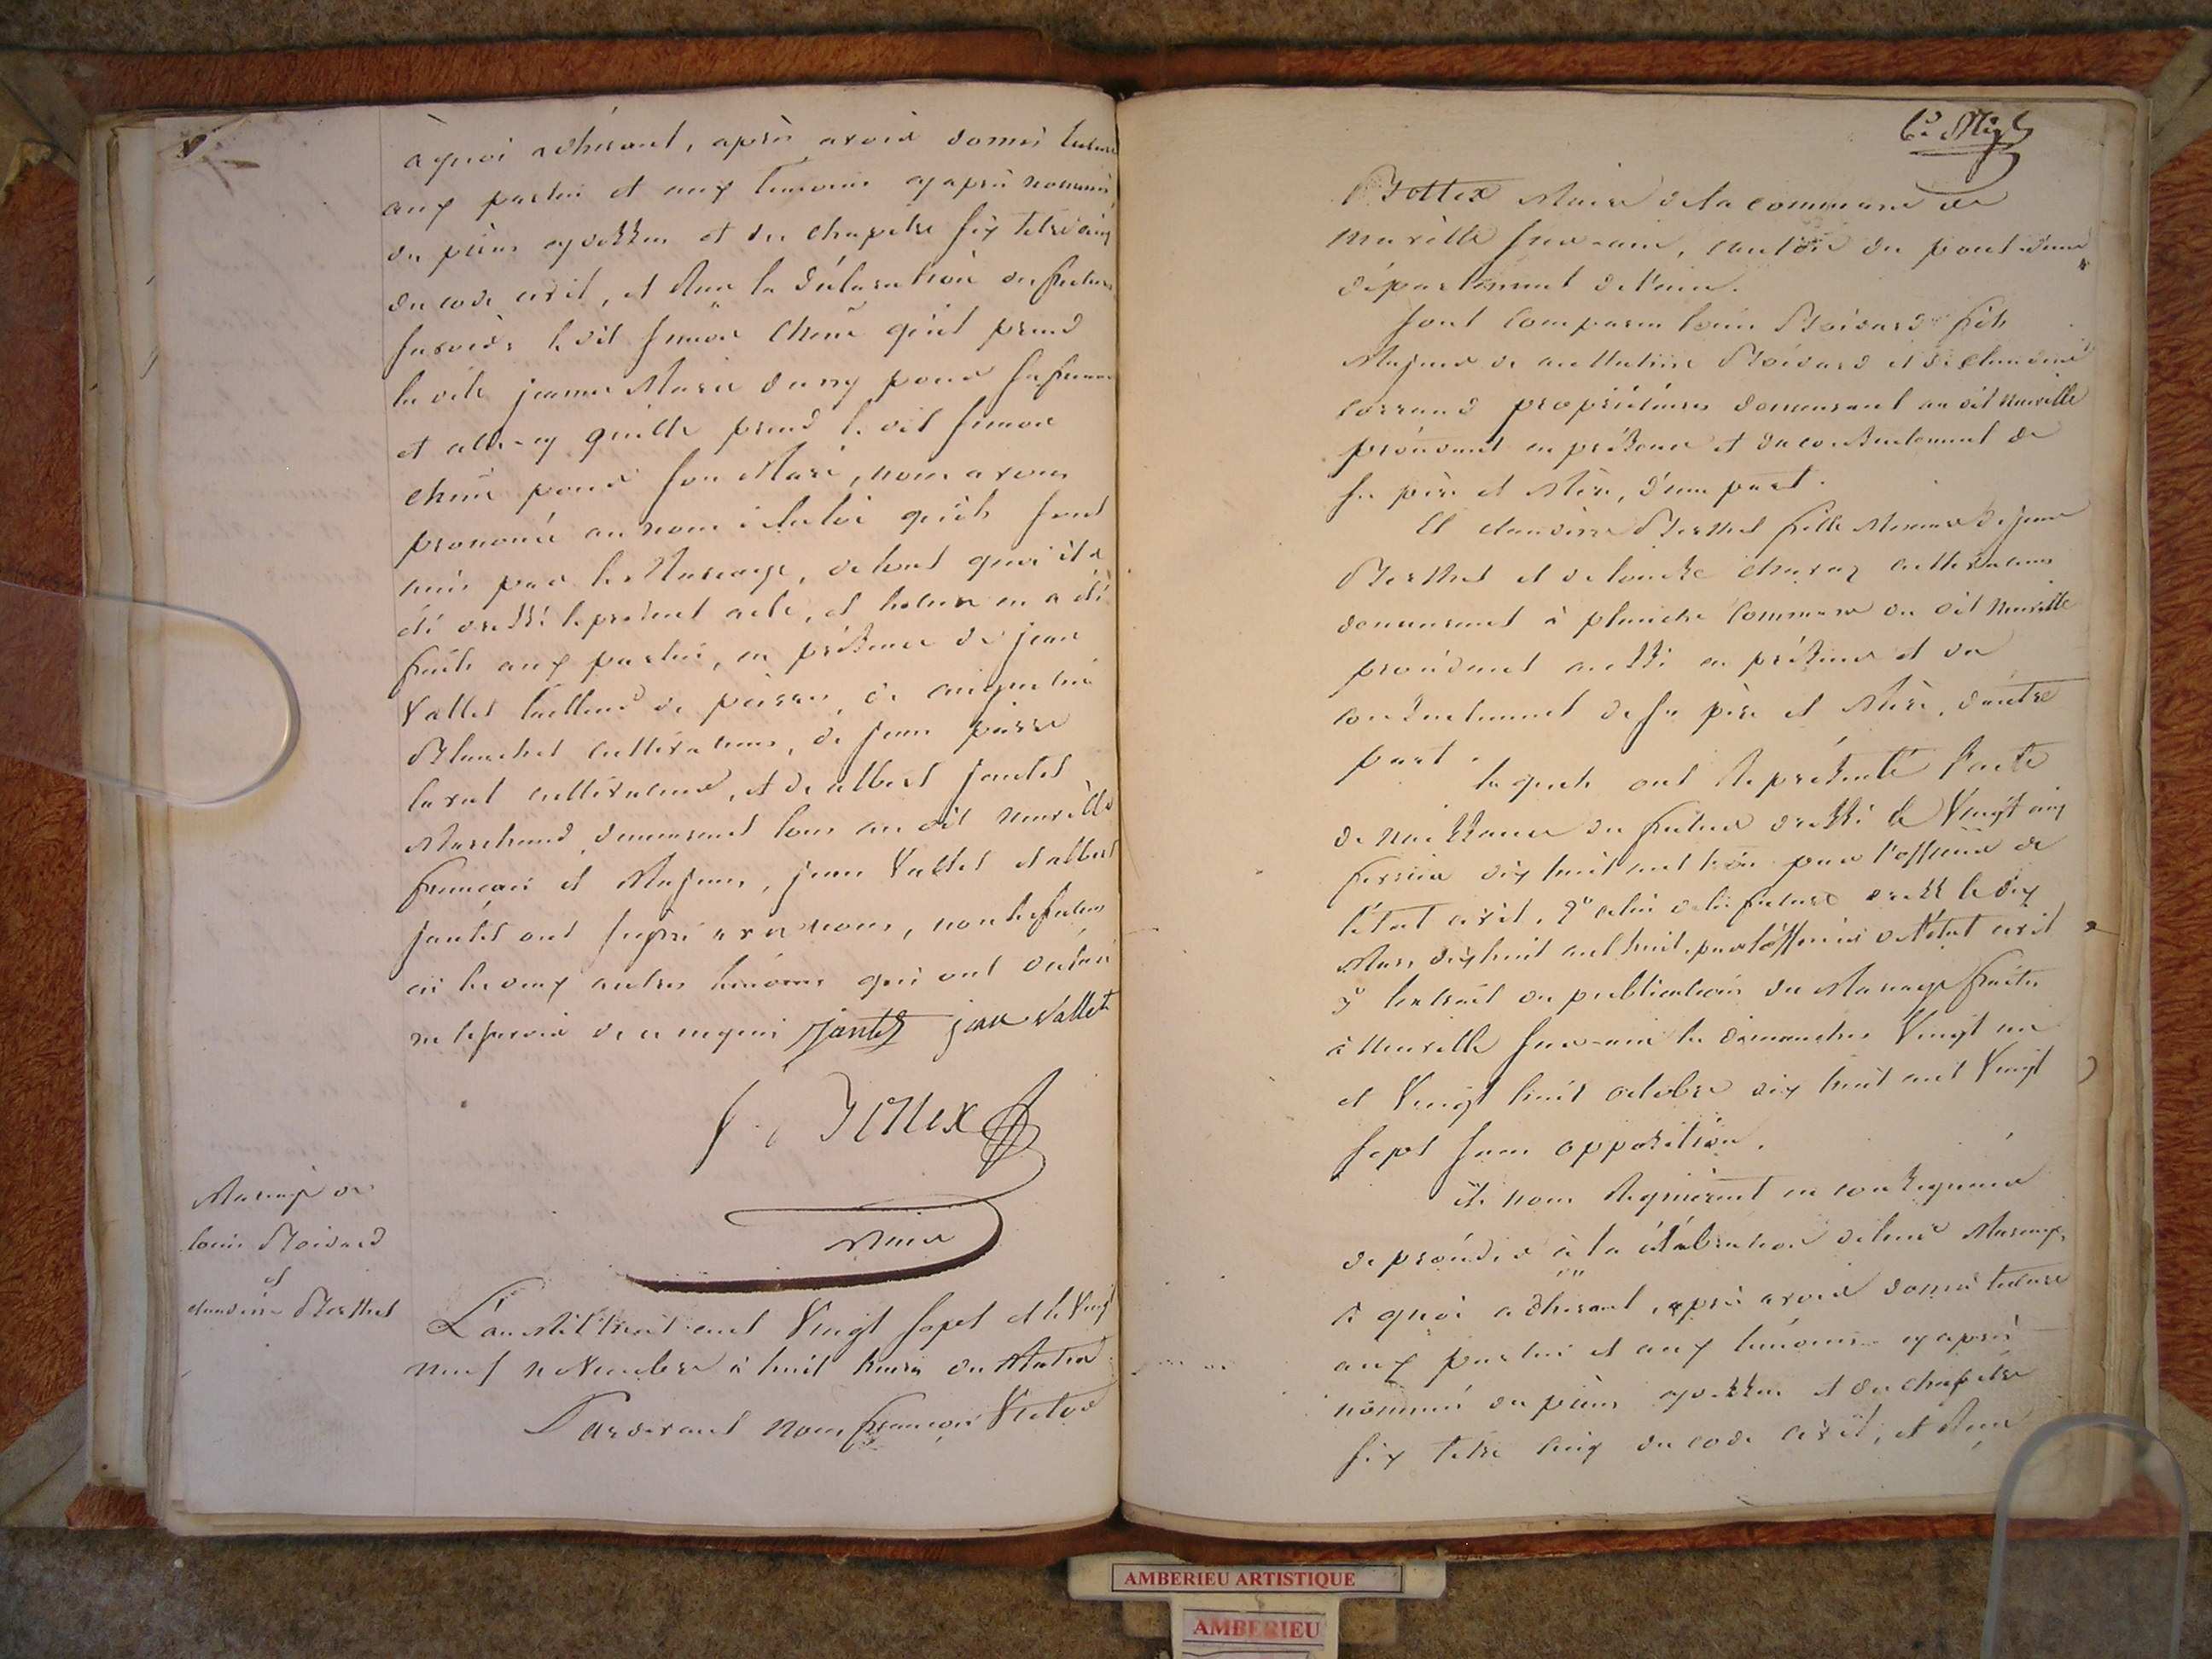 à quoi adhérant, après avoir donné lecture
aux parties et aux témoins cy après nommés,
des pièces cy dessus et du chapitre six titre cinq
du code civil, et sur la déclaration des futurs
savoir, le dit Simon Chêne qu'il prend
la dite jeanne Marie pour sa femme
et celle-cy qu'elle prend le dit Simon
Chêne pour son Mari, nous avons
prononcé au nom de la loi qu'ils sont
unis par le Mariage, de tout quoi il a
été dressé le présent acte, et lecture en a été
faite aux parties, en présence de jean
Vallet tailleur de pierres, de
Blanchet cultivateur, de jean pierre
cultivateur, et de albert jantet
Marchand, demeurant tous au dit neuville
français et Majeurs, jean Vallet et albert
jantet ont signé avec nous, non les futurs
ni les deux autres témoins qui ont déclaré
ne le savoir de ce requis Jantet jean Vallet
Bottex
Maire
Mariage de
louis Boivard
et
claudine Berthet
L'an Mil huit cent Vingt sept et le Vingt
neuf novembre à huit heures du Matin
Pardevant nous françois Victor
Bottex Maire de la commune de
neuville sur-ain, canton de pont-d'ain
département de l'ain.
Sont comparu louis Boivard fils
Majeur de Boivard et de claudine
propriétaires demeurant au dit neuville
procédant en présence et du consentement de
ses père et Mère, d'une part.
Et claudine Berthet fille Mineure de jean
Berthet et de cultivateurs
demeurant à planche commune du dit neuville
procédant aussi en présence et du
consentement de ses père et Mère, d'autre
part.
lesquels ont Représenté l'acte
de naissance du futur dressé le Vingt cinq
dix huit cent par l'officier de
l'état civil, 2° celui de la future dressé le dix
Mars dix huit cent huit, par l'officier de l'état civil
3° l'extrait des publications du Mariage faites
à neuville sur-ain les dimanches Vingt un
et Vingt huit octobre dix huit cent Vingt
sept sans opposition.
ils nous Requièrent en conséquence
de procéder à la célébration de leur Mariage,
à quoi adhérant, après avoir donné lecture
aux parties et aux témoins cy après
nommés des pièces cy dessus et du chapitre
six titre cinq du code civil, et sur
AMBERIEU ARTISTIQUE
AMBERIEU